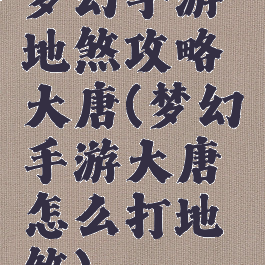 梦幻手游
地煞攻略
大唐(梦幻
手游大唐
怎么打地
煞)